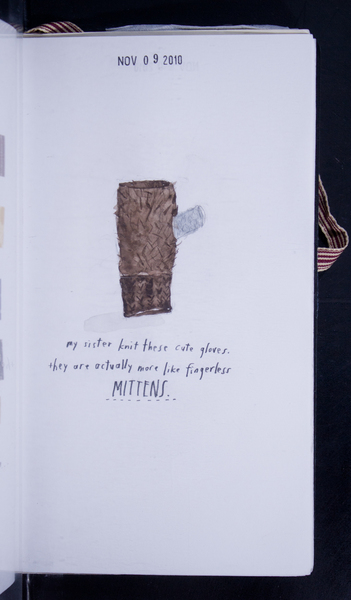 NOV 09 2010
my sister knit these cute gloves.
they are actually more like fingerless
MITTENS.